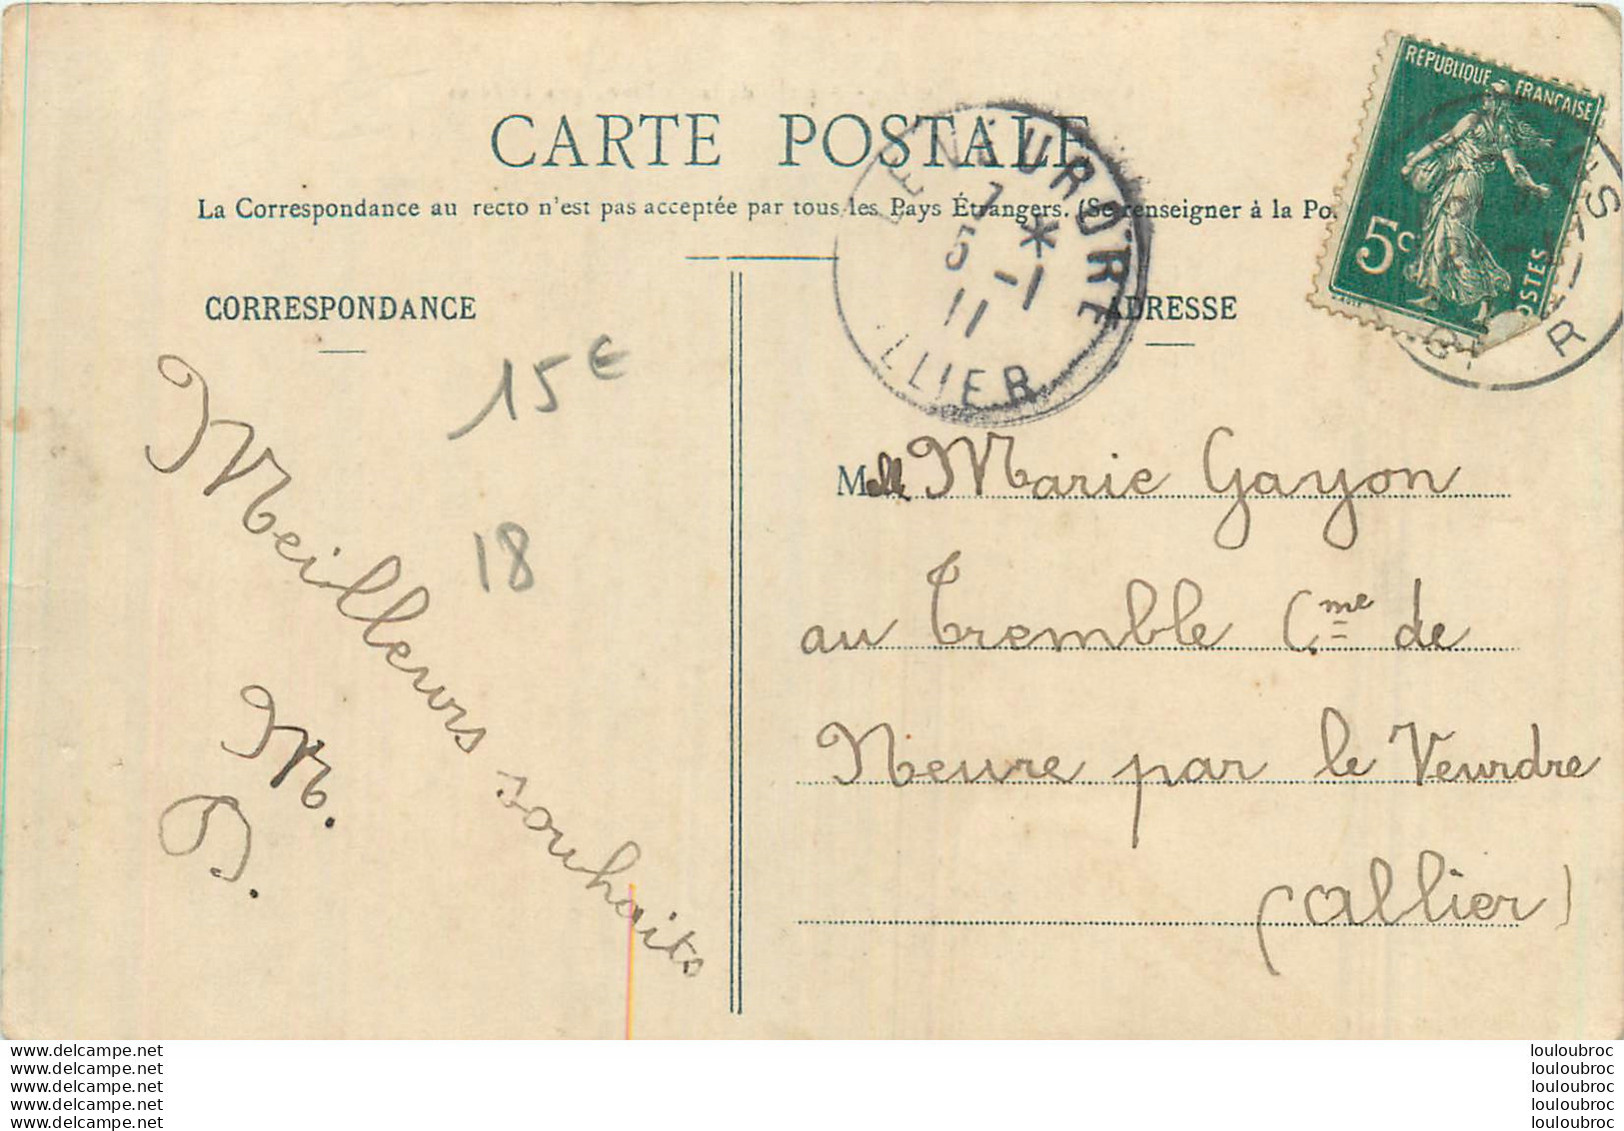 CARTE POSTALE
La Correspondance au recto n'est pas acceptée par tous les Pays Étrangers. (Se renseigner à la Po.
CORRESPONDANCE
ADRESSE
REPUBLIQUE FRANÇAISE
5c
POSTES
LE VEURDRE
7 *
5 -1
11
ALLIER
15€
18
Meilleurs souhaits
M.
Mlle Marie Gayon
au Tremble Cme de
Neure par le Veurdre
(Allier)
www.delcampe.net
www.delcampe.net
www.delcampe.net
www.delcampe.net
www.delcampe.net
louloubroc
louloubroc
louloubroc
louloubroc
louloubroc